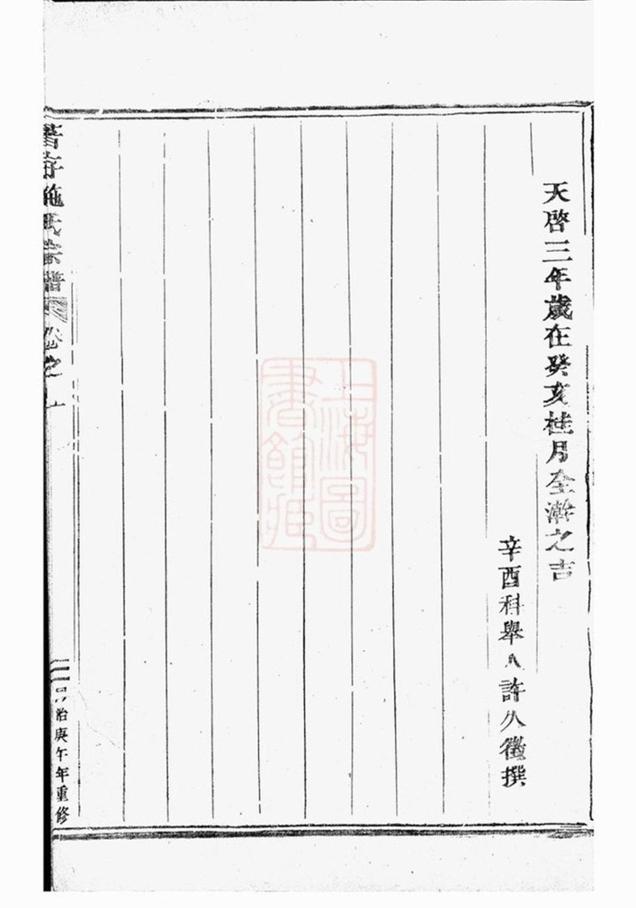 天啓三年歲在癸亥桂月全澣之吉
辛酉科舉人許久徵撰
施氏宗譜 卷之
治庚午年重修
上海圖書館藏